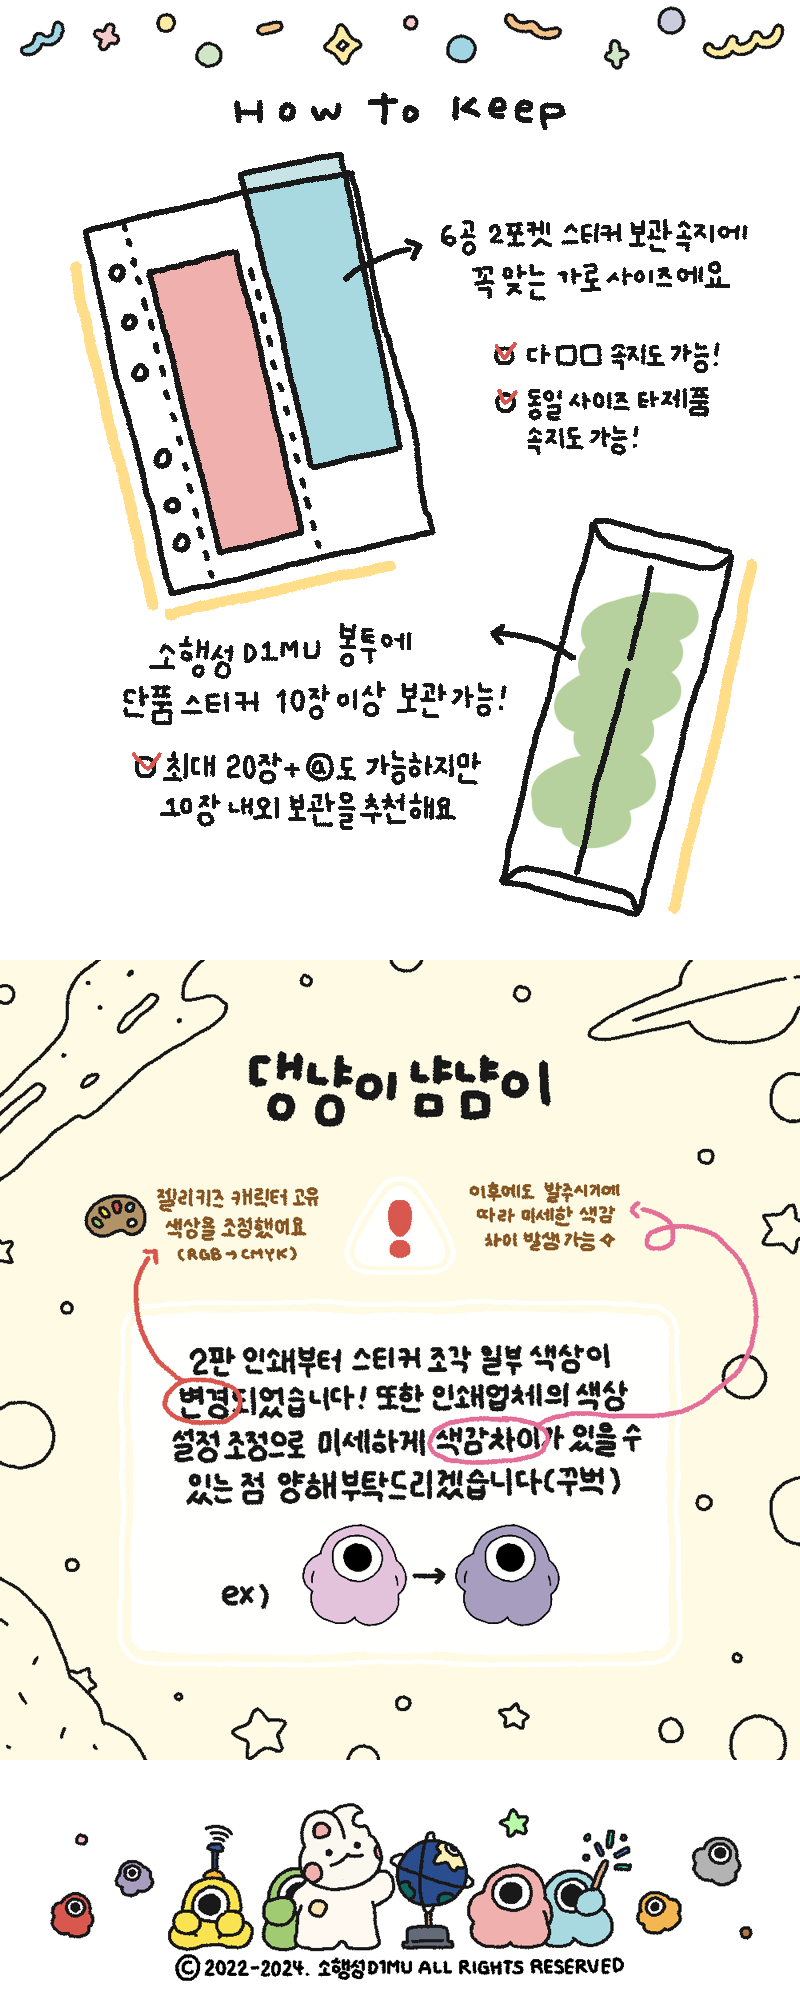 How To Keep
6공 2포켓 스티커 보관 속지에
꼭 맞는 가로 사이즈에요
다□□ 속지도 가능!
동일 사이즈 타제품
속지도 가능!
소행성 D1MU 봉투에
단품 스티커 10장 이상 보관 가능!
최대 20장+@도 가능하지만
10장 내외 보관을 추천해요
댕냥이냠냠이
젤리키즈 캐릭터 고유
색상을 조정했어요
(RGB→CMYK)
이후에도 발주시기에
따라 미세한 색감
차이 발생 가능✧
2판 인쇄부터 스티커 조각 일부 색상이
변경되었습니다! 또한 인쇄업체의 색상
설정 조정으로 미세하게 색감차이가 있을 수
있는 점 양해부탁드리겠습니다(꾸벅)
ex)
© 2022-2024. 소행성D1MU ALL RIGHTS RESERVED